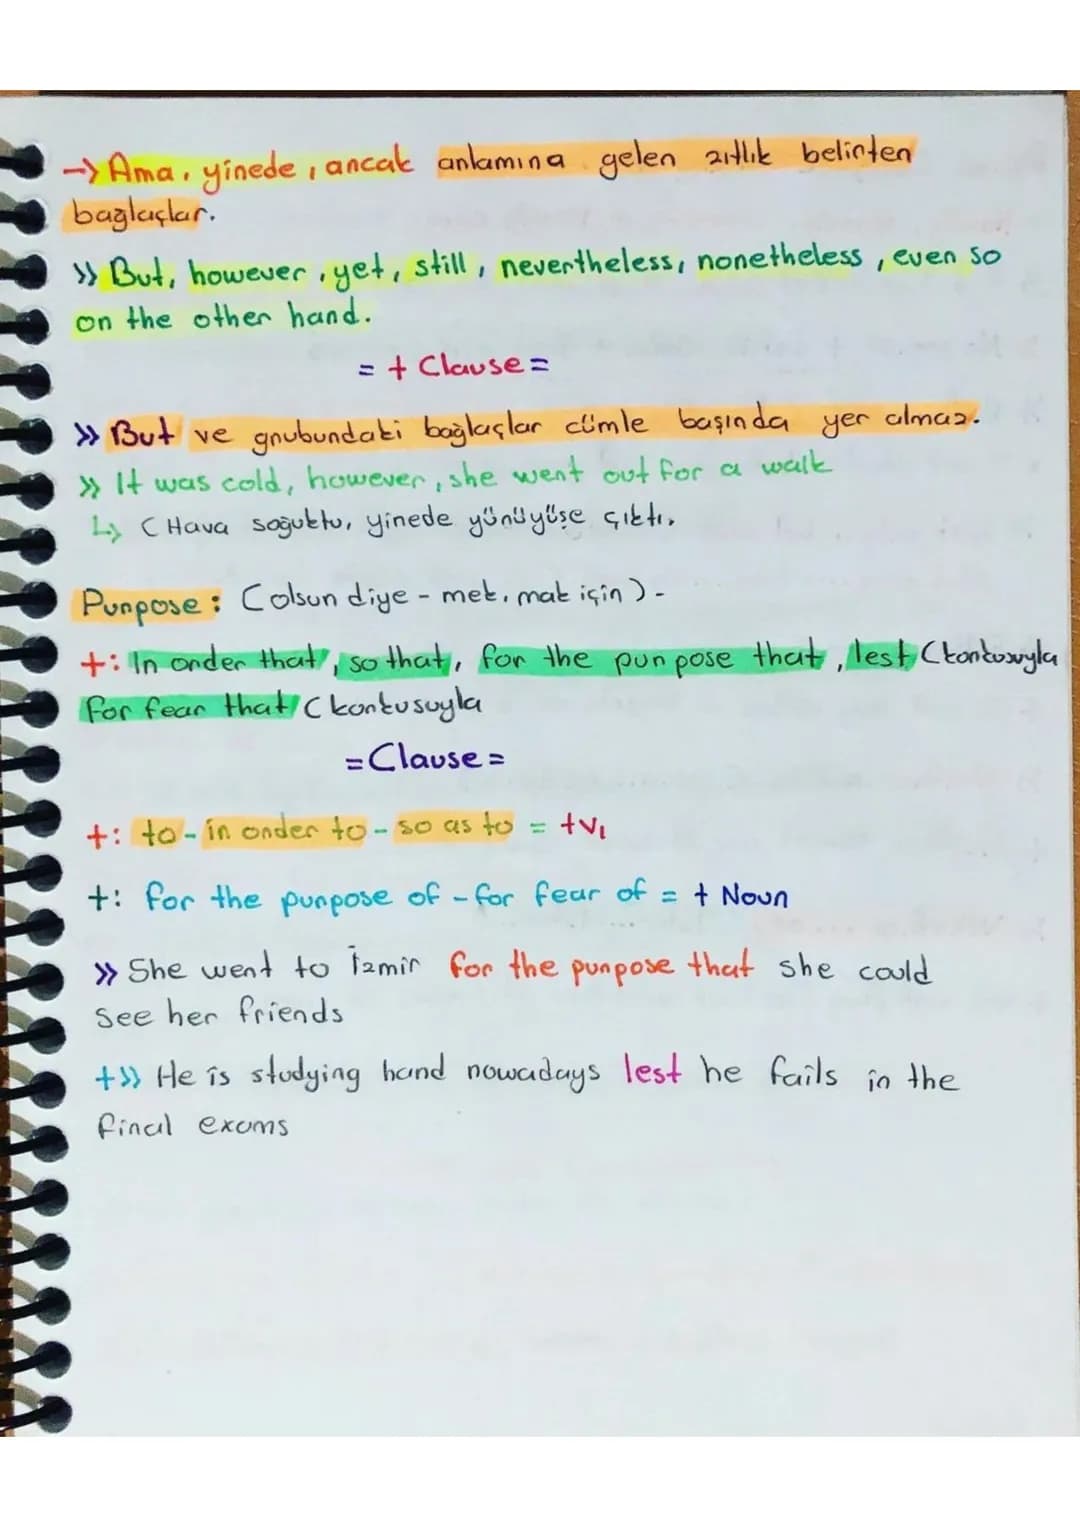 → Ama, yinede, ancak anlamına gelen zıtlık belirten
bağlaçlar.
» But, however, yet, still, nevertheless, nonetheless, even so
on the other hand.
= + Clause =
» But ve grubundaki bağlaçlar cümle başında yer almaz.
» It was cold, however, she went out for a walk
↳ (Hava soğuktu, yinede yürüyüşe çıktı.
Purpose: (olsun diye - mek, mak için) -
+: In order that, so that, for the purpose that, lest (korkusuyla
for fear that (korkusuyla
= Clause =
+: to - in order to - so as to = +V1
+: for the purpose of - for fear of = + Noun
» She went to İzmir for the purpose that she could
see her friends
+» He is studying hard nowadays lest he fails in the
final exams